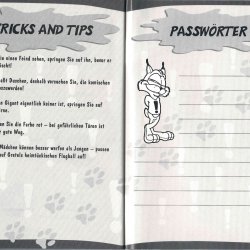 TRICKS AND TIPS
einen Feind sehen, springen Sie auf ihn, bevor er
Duschen, deshalb versuchen Sie, die komischen
Gigant eigentlich keiner ist, springen Sie auf
Sie die Farbe rot – bei gefährlichen Türen ist
gute Weg.
Mädchen können besser werfen als Jungen – passen
auf Gretels heimtückischen Flugball auf!
PASSWÖRTER